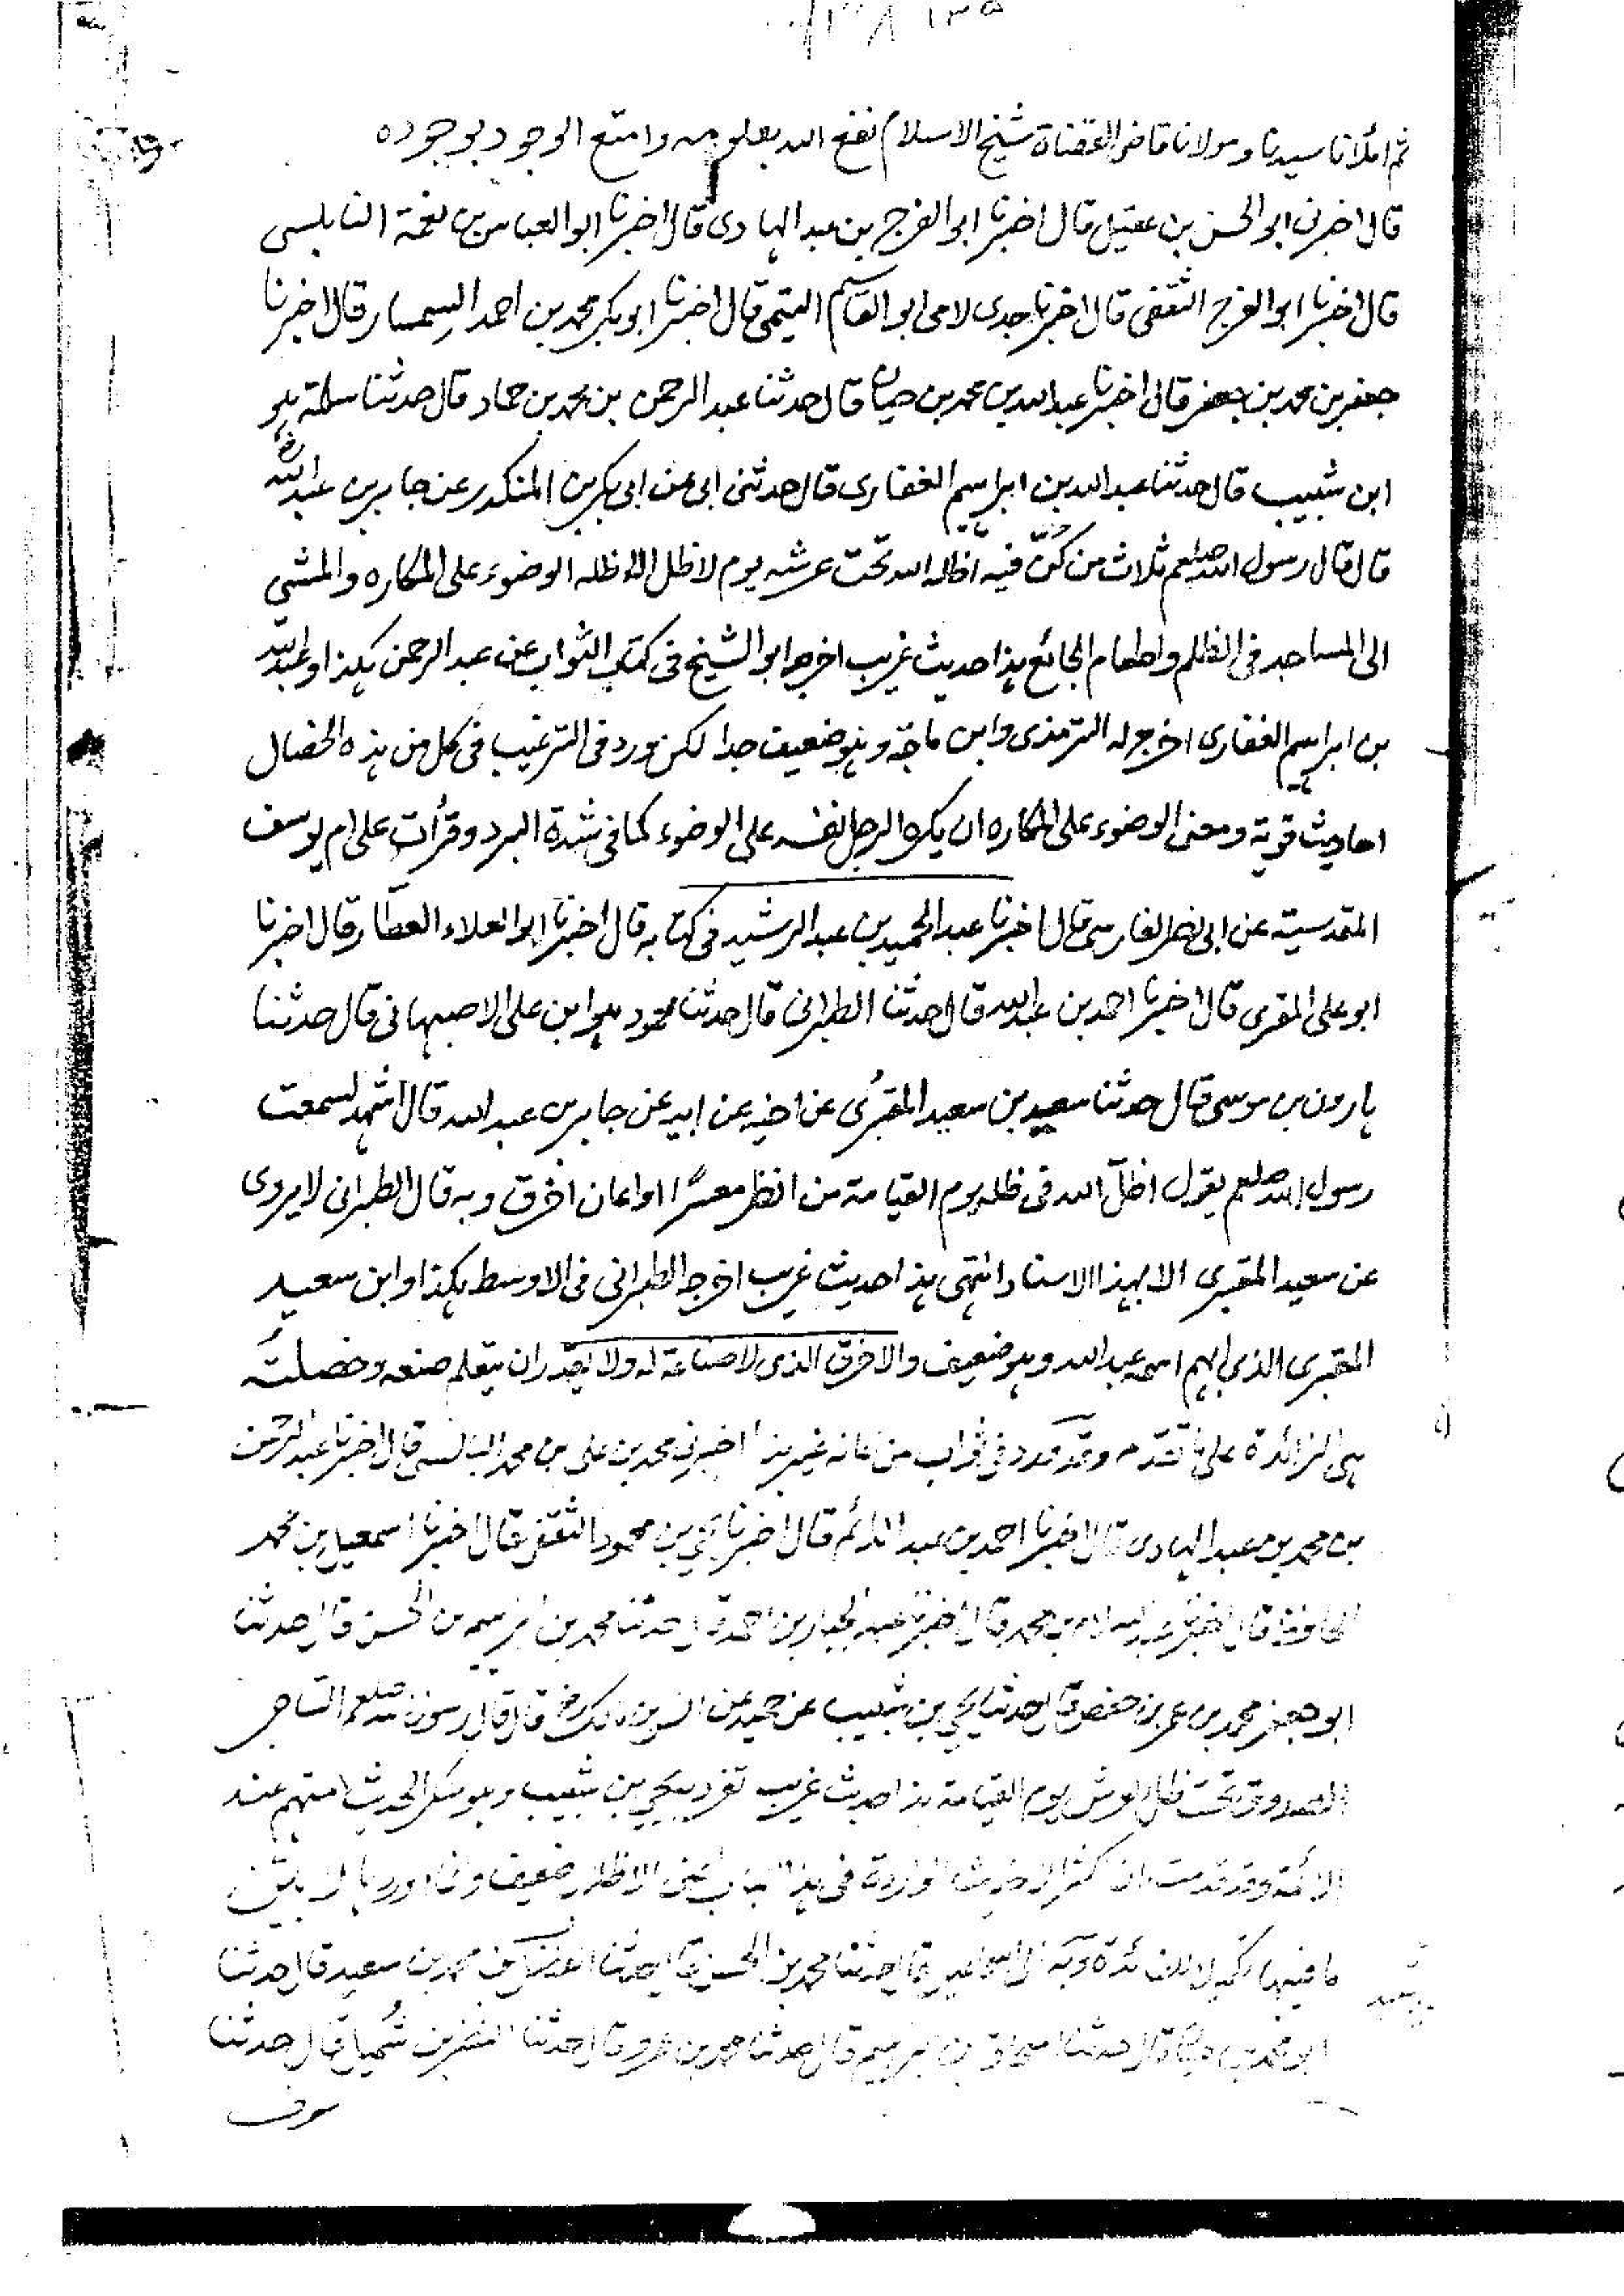 ١٣٥
ثم املأنا سيدنا ومولانا قاضى القضاة شيخ الاسلام نفع الله بعلومه وامتع الوجود بوجوده
قال اخبرنى ابو الحسن بن عقيل قال اخبرنا ابو الفرج بن عبد الهادى قال اخبرنا ابو العباس بن نعمة النابلسى
قال اخبرنا ابو الفرج الثقفى قال اخبرنا جدى لامى ابو القاسم التيمى قال اخبرنا ابو بكر محمد بن احمد السمسار قال اخبرنا
جعفر بن محمد بن جعفر قال اخبرنا عبد الله بن محمد بن حيان قال حدثنا عبد الرحمن بن محمد بن حماد قال حدثنا سلمة هو
ابن شبيب قال حدثنا عبد الله بن ابراهيم الغفارى قال حدثنى ابى عن ابى بكر بن المنكدر عن جابر بن عبد الله رض
قال قال رسول الله صلعم ثلاث من كنّ فيه اظله الله تحت عرشه يوم لا ظل الا ظله الوضوء على المكاره والمشى
الى المساجد فى الظلم واطعام الجائع هذا حديث غريب اخرجه ابو الشيخ فى كتاب الثواب عن عبد الرحمن هكذا وعبد الله
بن ابراهيم الغفارى اخرج له الترمذى وابن ماجة وهو ضعيف جدا لكن ورد فى الترغيب فى كل من هذه الخصال
احاديث قوية ومعنى الوضوء على المكاره ان يكره الرجل نفسه على الوضوء كما فى شدة البرد وقرأت على ام يوسف
المقدسية عن ابى نصر الفارسى قال اخبرنا عبد الحميد بن عبد الرشيد فى كتابه قال اخبرنا ابو العلاء العطار قال اخبرنا
ابو على المقرى قال اخبرنا احمد بن عبد الله قال حدثنا الطبرانى قال حدثنا محمود هو ابن على الاصبهانى قال حدثنا
هارون بن موسى قال حدثنا سعيد بن سعيد المقبرى عن اخيه عن ابيه عن جابر بن عبد الله قال اشهد لسمعت
رسول الله صلعم يقول اظلّ الله فى ظله يوم القيامة من انظر معسرًا او اعان اخرق وبه قال الطبرانى لا يروى
عن سعيد المقبرى الا بهذا الاسناد انتهى هذا حديث غريب اخرجه الطبرانى فى الاوسط هكذا وابن سعيد
المقبرى الذى ابهم اسمه عبد الله وهو ضعيف والاخرق الذى لا صناعة له ولا يقدر ان يتعلم صنعه وخصلته
هى الزائدة على ما تقدم وقد ورد فى ثواب من اعانه غير هذا اخبرنى محمد بن على بن محمد البالسى قال اخبرنا عبد الرحمن
بن محمد بن عبد الهادى قال اخبرنا احمد بن عبد الدائم قال اخبرنا يحيى بن محمود الثقفى قال اخبرنا اسمعيل بن محمد
الحافظ قال اخبرنا عبد السلام بن محمد قال اخبرنا عبد الجبار بن احمد قال حدثنا محمد بن ابراهيم بن الحسن قال حدثنا
ابو جعفر محمد بن عمر بن حفص قال حدثنا يحيى بن شبيب عن حميد عن انس بن مالك رض قال قال رسول الله صلعم التاجر
الصدوق تحت ظل العرش يوم القيامة هذا حديث غريب تفرد به يحيى بن شبيب وهو منكر الحديث متهم عند
الائمة وقد قدمت ان اكثر الاحاديث الواردة فى هذا الباب اعنى الاظلال ضعيف وانما اوردها لابين
ما فيها تكميلا للفائدة وبه الى قال حدثنا محمد بن الحسن قال حدثنا محمد بن سعيد قال حدثنا
ابو محمد بن قال حدثنا اسحاق بن ابراهيم قال حدثنا محمد بن عمرو قال حدثنا النضر بن شميل قال حدثنا
عوف